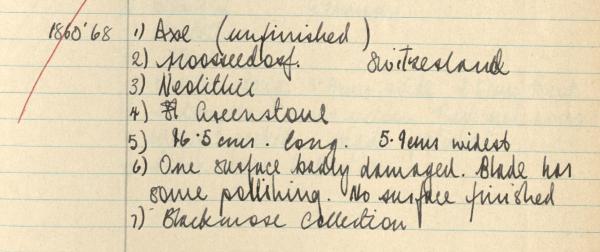 1860'68 1) Axe (unfinished)
2) Moosseedorf. Switzerland
3) Neolithic
4) Greenstone
5) 16.5 cms. long. 5.9 cms widest
6) One surface badly damaged. Blade has
some polishing. No surface finished
7) Blackmore Collection